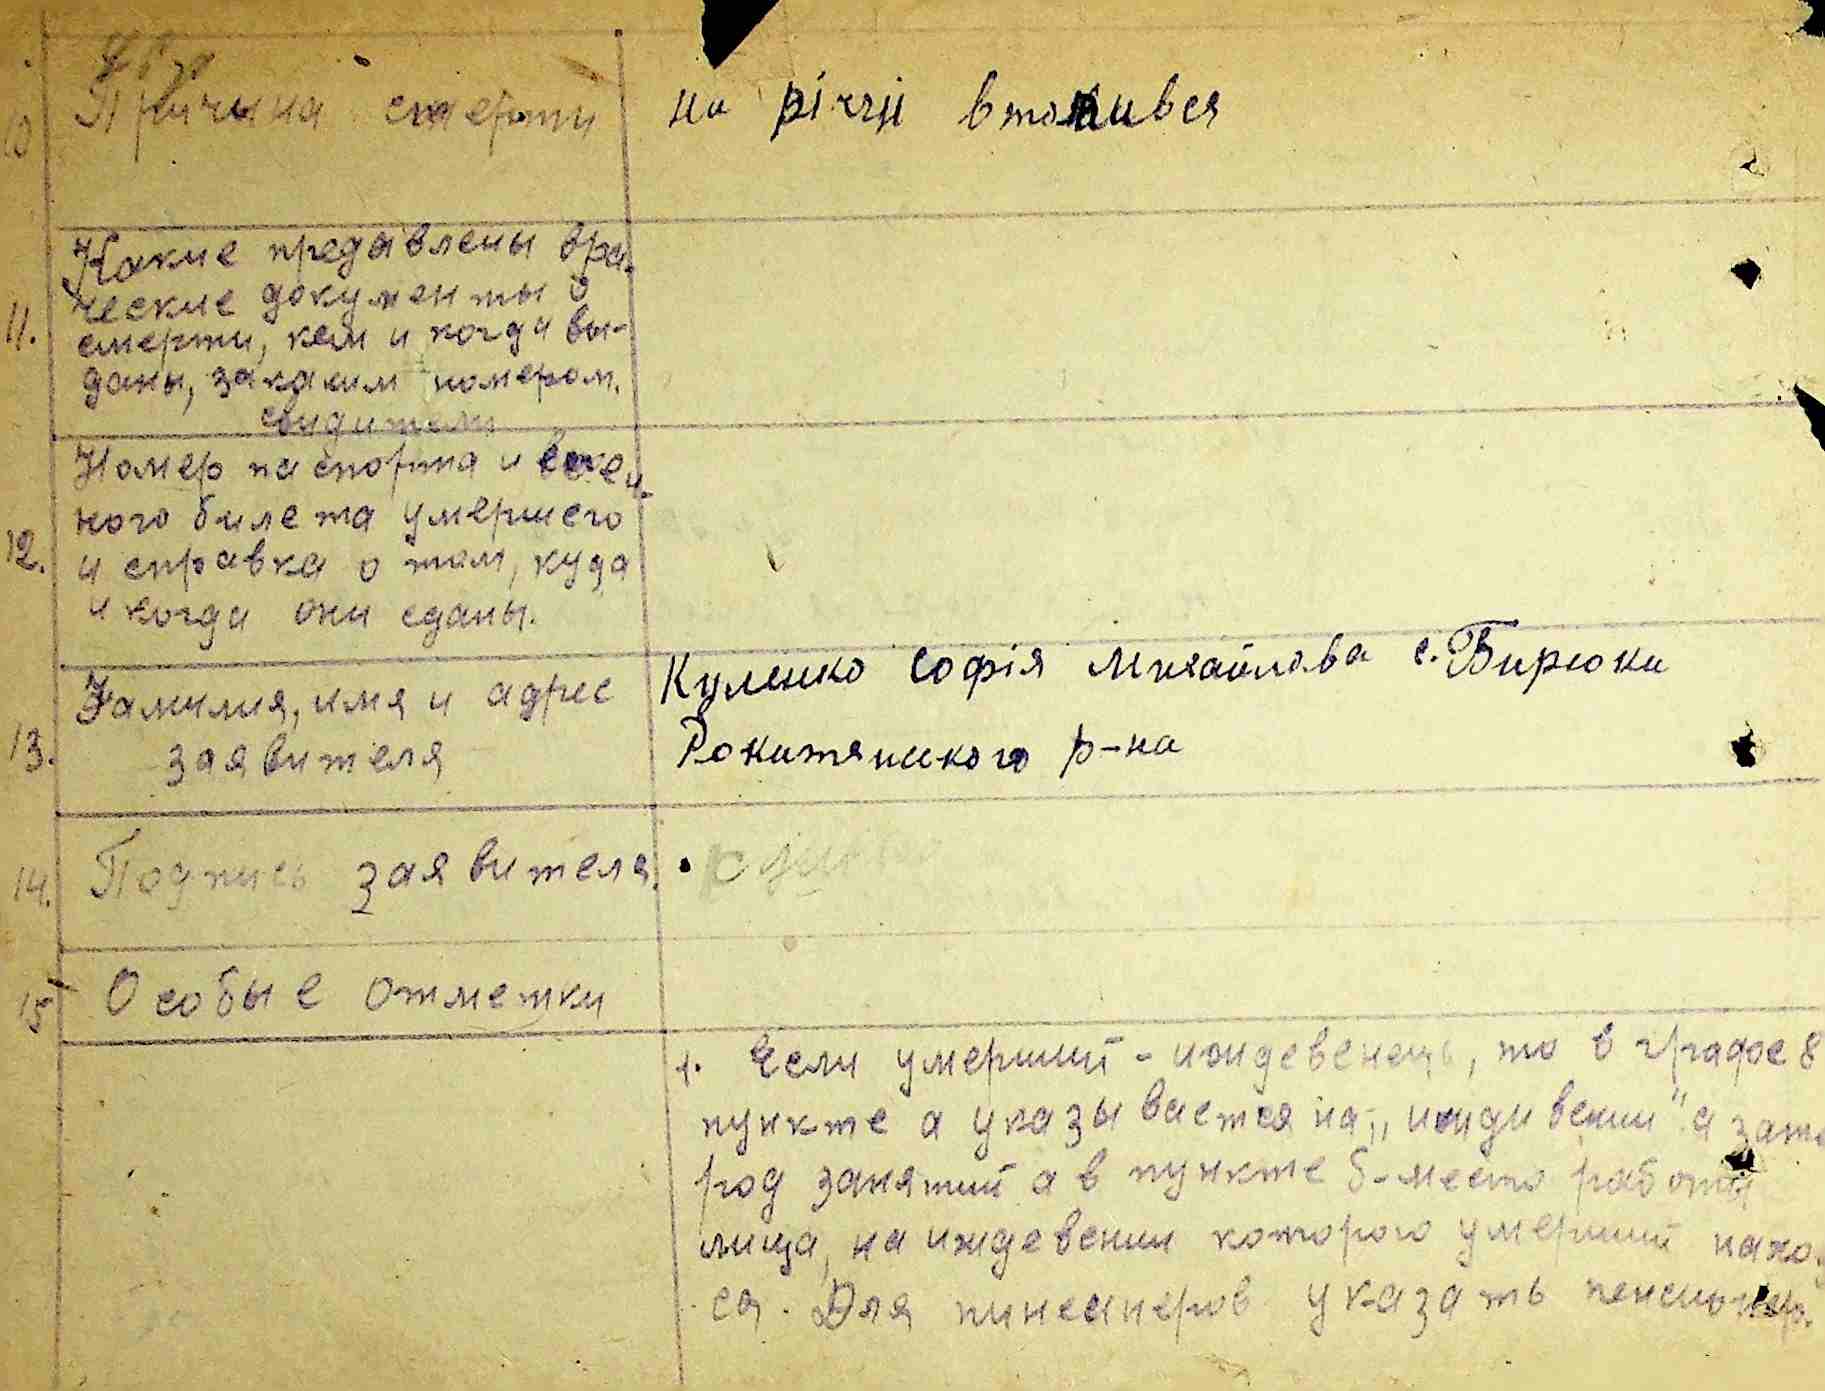 10
Причина смерти
на річці втопився
11.
Какие предявлены вра-
ческие документы о
смерти, кем и когда вы-
даны, за каким номером.
свидители
12.
Номер паспорта и воен-
ного билета умершего
и справка о том, куда
и когда они сданы.
13.
Фамилия, имя и адрес
заявителя
Куленко Софія Михайлова с. Бирюки
Рокитянського р-на
14.
Подпись заявителя.
15
Особые отметки
1. Если умерший - иждевенець, то в графе 8
пункте а указывается на „иждивении" а зате
род занятий а в пункте б - место работы
лица, на иждевении которого умерший нахо
ся. Для пинсинеров указать пенсионер.